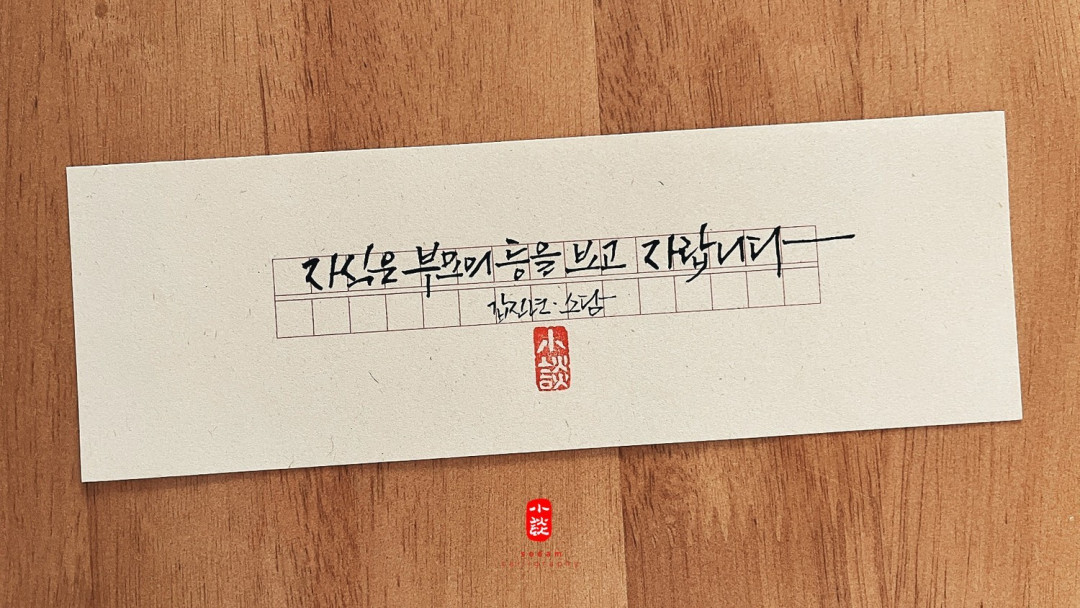 자식은 부모의 등을 보고 자랍니다
갑진년·소담
小談
小談
sodam
calligraphy